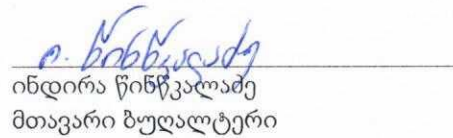 ი. წინწკალაძე
ინდირა წინწკალაძე
მთავარი ბუღალტერი